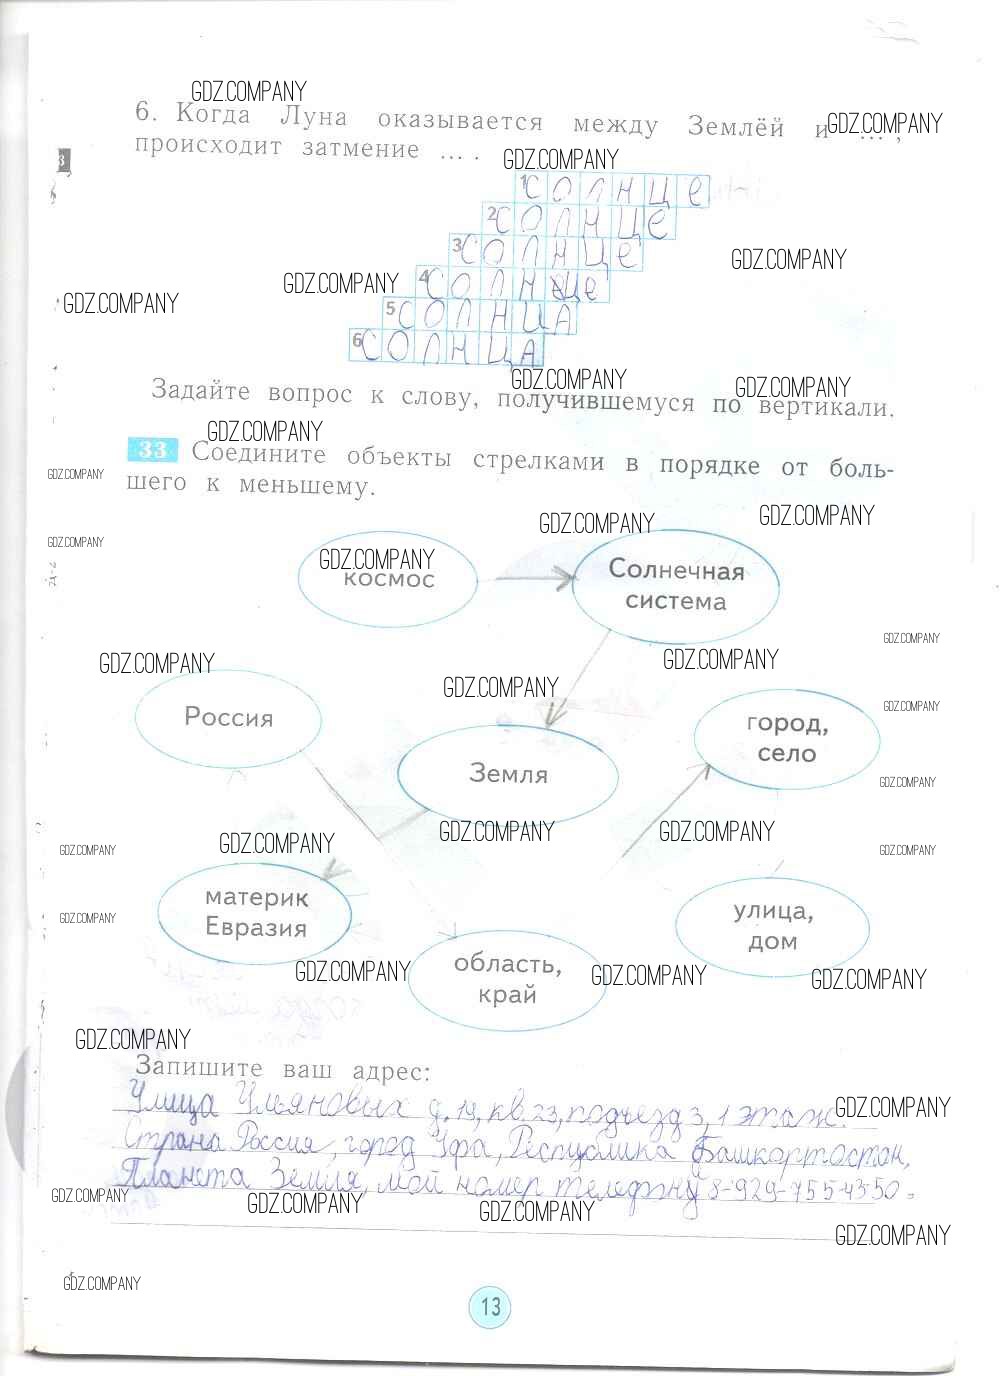 GDZ.COMPANY
6. Когда Луна оказывается между Землёй и ... ,
GDZ.COMPANY
происходит затмение ... .
GDZ.COMPANY
1 СОЛНЦе
2 СОЛНЦе
3 СОЛНЦе
GDZ.COMPANY
4 СОЛНЦе
GDZ.COMPANY
GDZ.COMPANY
5 СОЛНЦА
6 СОЛНЦА
GDZ.COMPANY
GDZ.COMPANY
Задайте вопрос к слову, получившемуся по вертикали.
GDZ.COMPANY
33 Соедините объекты стрелками в порядке от боль-
GDZ.COMPANY
шего к меньшему.
GDZ.COMPANY
GDZ.COMPANY
GDZ.COMPANY
GDZ.COMPANY
космос
Солнечная
система
GDZ.COMPANY
GDZ.COMPANY
GDZ.COMPANY
GDZ.COMPANY
GDZ.COMPANY
Россия
город,
село
Земля
GDZ.COMPANY
GDZ.COMPANY
GDZ.COMPANY
GDZ.COMPANY
GDZ.COMPANY
GDZ.COMPANY
материк
Евразия
улица,
дом
GDZ.COMPANY
область,
край
GDZ.COMPANY
GDZ.COMPANY
GDZ.COMPANY
GDZ.COMPANY
Запишите ваш адрес:
Улица Ульяновых д, 19, кв. 23, подъезд 3, 1 этаж.
GDZ.COMPANY
Страна Россия, город Уфа, Республика Башкортостан,
Планета Земля, мой номер телефону 8-929-755-43 50.
GDZ.COMPANY
GDZ.COMPANY
GDZ.COMPANY
GDZ.COMPANY
GDZ.COMPANY
13